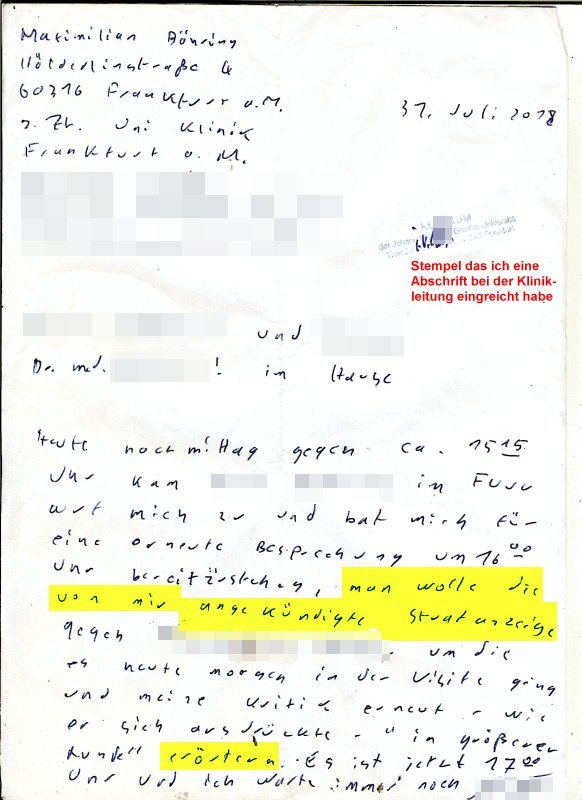 Maximilian Bähring
Hölderlinstraße 4
60316 Frankfurt a.M.
z. Zt. Uni Klinik
Frankfurt a. M.
31. Juli 2018
der Johann
Stempel das ich eine
Abschrift bei der Klinik-
leitung eingreicht habe
und
Dr. med. ! im Hause
Heute nachmittag gegen ca. 15 15
Uhr kam in
auf mich zu und bat mich für
eine erneute Besprechung um 16 00
Uhr bereitzustehen, man wolle die
von mir angekündigte Strafanzeige
gegen um die
es heute morgen in der Visite ging
und meine Kritik erneut - wie
er sich ausdrückte - "in größerer
Runde" erörtern. Es ist jetzt 17 00
Uhr und ich warte immer noch